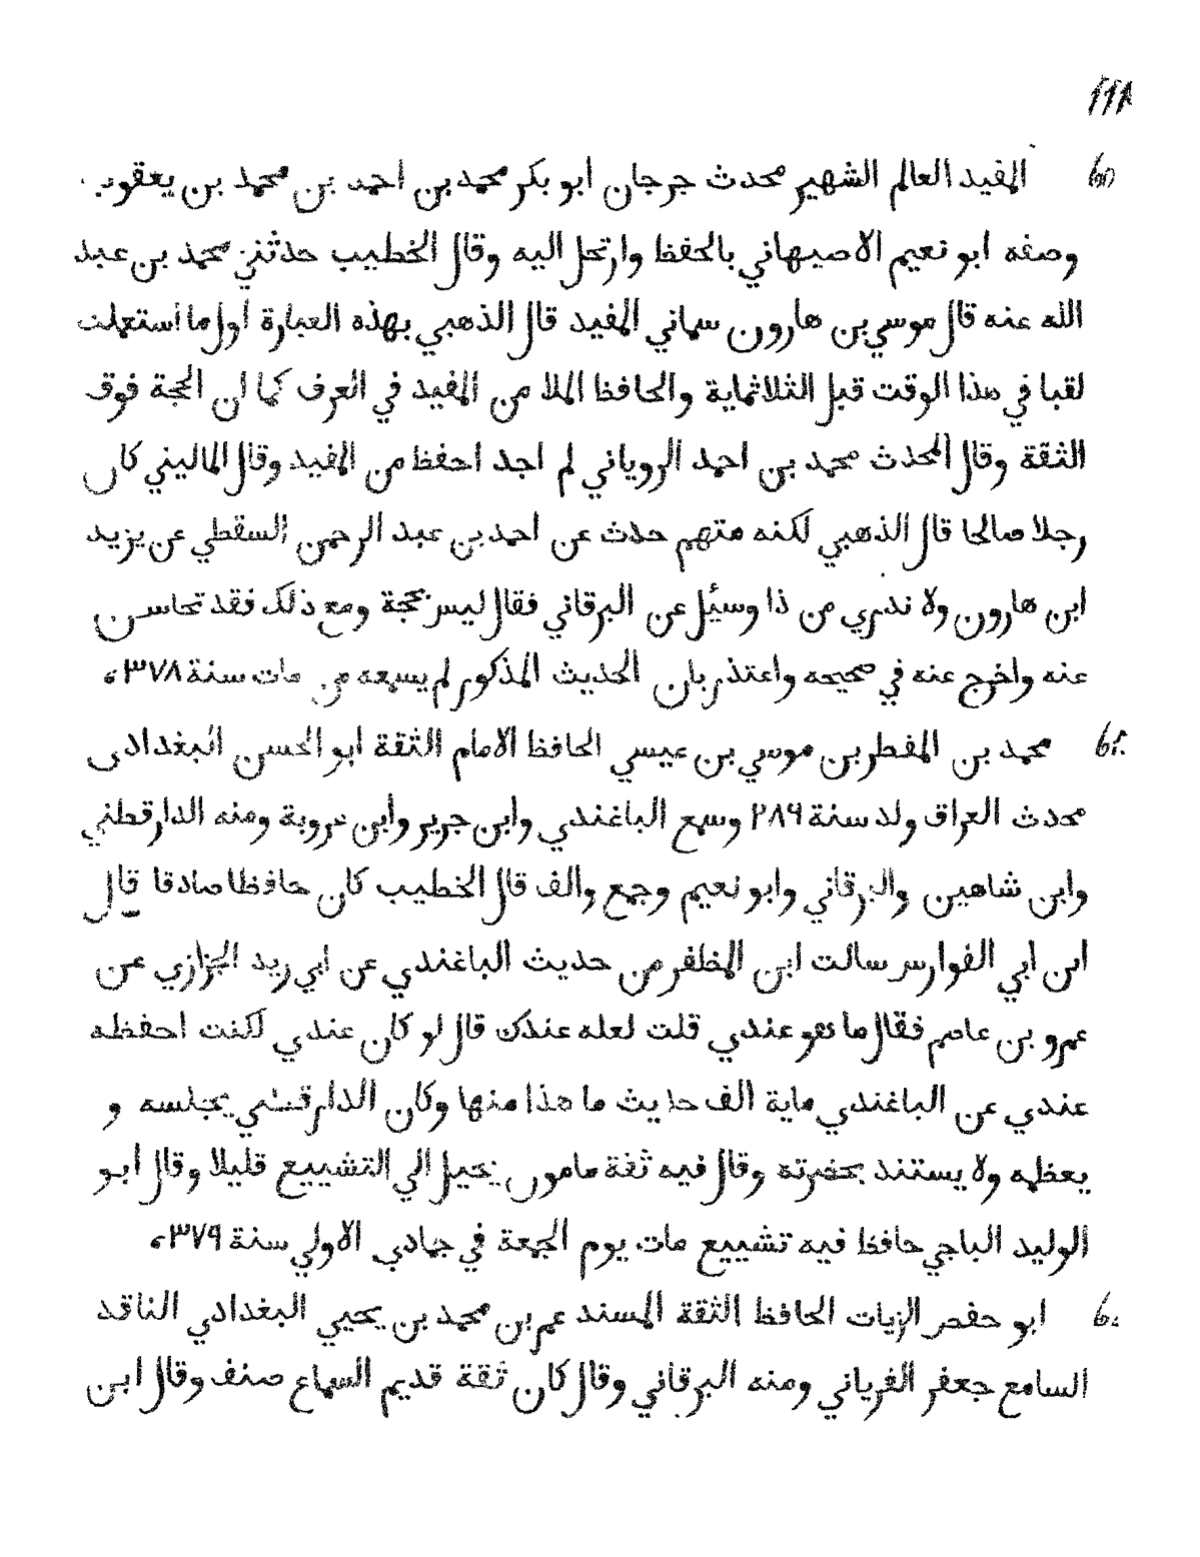 ١١٨
المفيد العالم الشهير محدث جرجان ابو بكر محمد بن احمد بن محمد بن يعقوب
وصفه ابو نعيم الاصبهاني بالحفظ وارتحل اليه وقال الخطيب حدثني محمد بن عبد
الله عنه قال موسي بن هارون سماني المفيد قال الذهبي بهذه العبارة اول ما استعملت
لقبا في هذا الوقت قبل الثلاثماية والحافظ الملا من المفيد في العرف كما ان الحجة فوق
الثقة وقال المحدث محمد بن احمد الروياني لم اجد احفظ من المفيد وقال الماليني كان
رجلا صالحا قال الذهبي لكنه متهم حدث عن احمد بن عبد الرحمن السقطي عن يزيد
ابن هارون ولا ندري من ذا وسئل عن البرقاني فقال ليس بحجة ومع ذلك فقد تحاسن
عنه واخرج عنه في صحيحه واعتذر بان الحديث المذكور لم يسمعه من مات سنة ٣٧٨،
محمد بن المفطر بن موسي بن عيسي الحافظ الامام الثقة ابو الحسن البغدادى
محدث العراق ولد سنة ٢٨٩ وسمع الباغندي وابن جرير وابن عروبة ومنه الدارقطني
وابن شاهين والبرقاني وابو نعيم وجمع والف قال الخطيب كان حافظا صادقا قال
ابن ابي الفوارس سالت ابن المظفر من حديث الباغندي عن ابي زيد الجزازي عن
عمرو بن عاصم فقال ما هو عندي قلت لعله عندك قال لو كان عندي لكنت احفظه
عندي عن الباغندي ماية الف حديث ما هذا منها وكان الدارقطني يجلسه و
يعظمه ولا يستند بحضرته وقال فيه ثقة مامون يميل الي التشييع قليلا وقال ابو
الوليد الباجي حافظ فيه تشييع مات يوم الجمعة في جمادي الاولي سنة ٣٧٩،
ابو حفص الزيات الحافظ الثقة المسند عمر بن محمد بن يحيي البغدادي الناقد
السامع جعفر الفرياني ومنه البرقاني وقال كان ثقة قديم السماع صنف وقال ابن